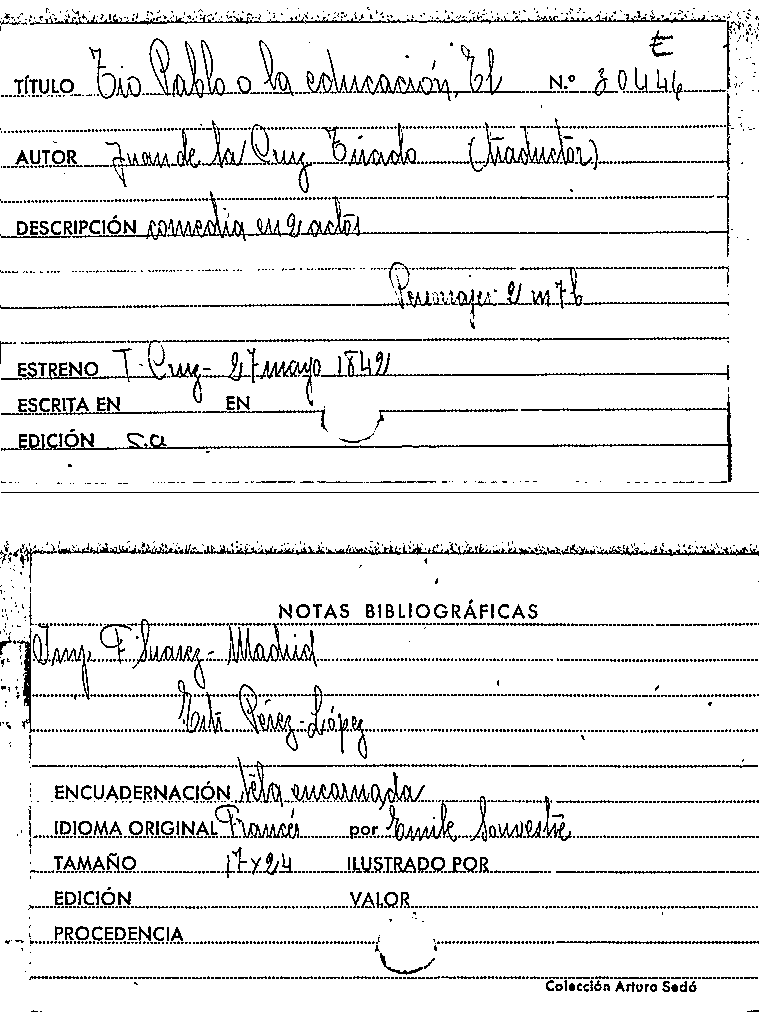 t
TÍTULO Tio Pablo o la educación, El N.º 30446
AUTOR Juan de la Cruz Tirado (traductor)
DESCRIPCIÓN comedia en 2 actos
Personajes 2 m 7 h
ESTRENO T. Cruz - 27 mayo 1842
ESCRITA EN EN
EDICIÓN s.a
NOTAS BIBLIOGRÁFICAS
Imp F Suarez - Madrid
Edit Pérez-López
ENCUADERNACIÓN tela encarnada
IDIOMA ORIGINAL Francés por Emile Souvestre
TAMAÑO 17x24 ILUSTRADO POR
EDICIÓN VALOR
PROCEDENCIA
Colección Arturo Sedó